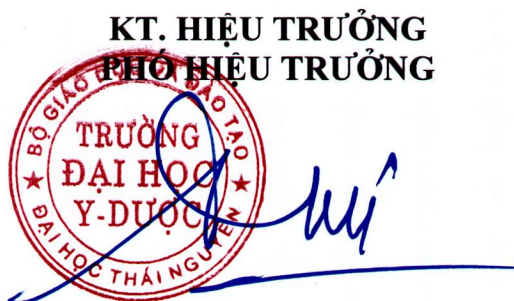 KT. HIỆU TRƯỞNG
PHÓ HIỆU TRƯỞNG
BỘ GIÁO DỤC VÀ ĐÀO TẠO
TRƯỜNG
ĐẠI HỌC
Y-DƯỢC
ĐẠI HỌC THÁI NGUYÊN